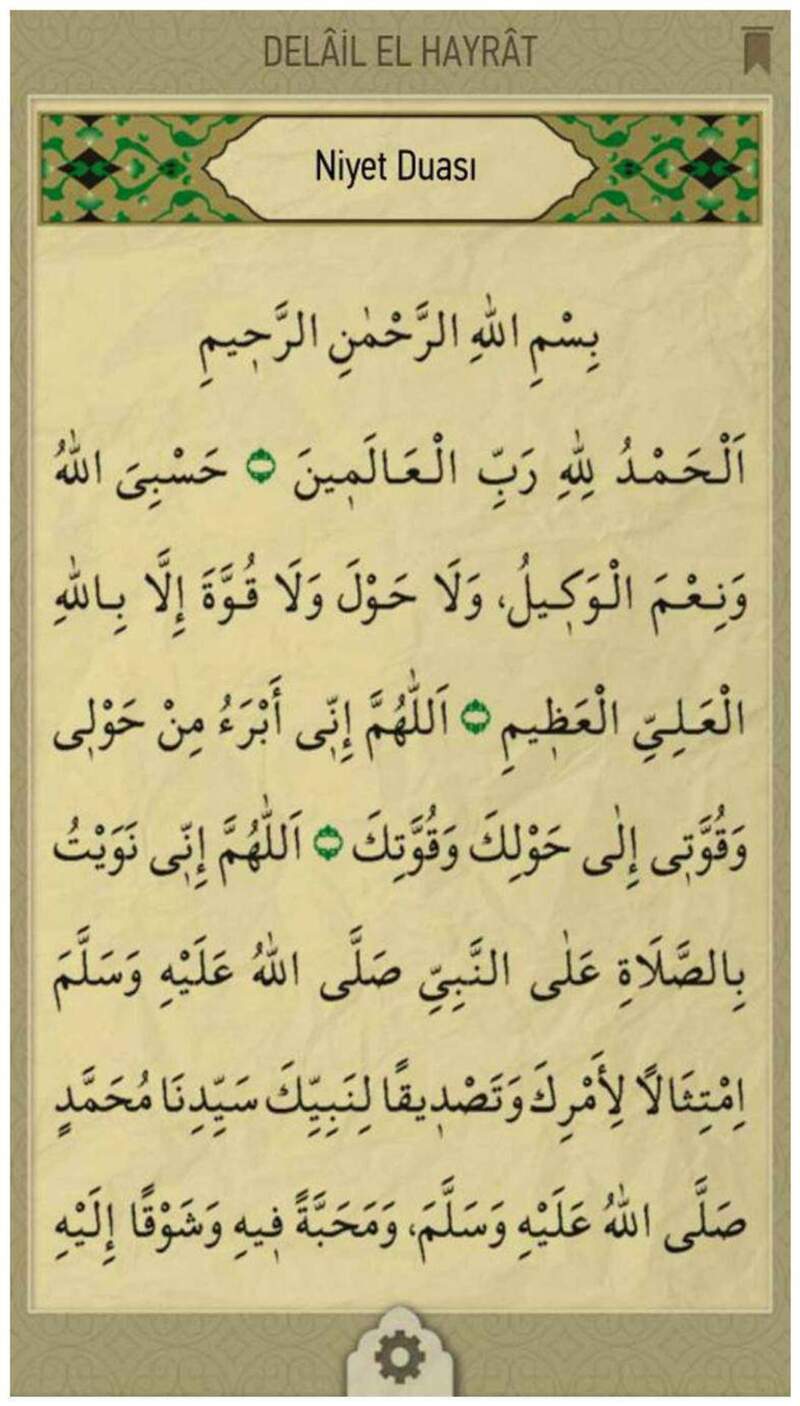 DELÂİL EL HAYRÂT
Niyet Duası
بِسْمِ اللهِ الرَّحْمٰنِ الرَّحِيمِ
اَلْحَمْدُ لِلّٰهِ رَبِّ الْعَالَمِينَ حَسْبِيَ اللهُ
وَنِعْمَ الْوَكِيلُ، وَلَا حَوْلَ وَلَا قُوَّةَ إِلَّا بِاللهِ
الْعَلِيِّ الْعَظِيمِ اَللّٰهُمَّ إِنِّي أَبْرَءُ مِنْ حَوْلِي
وَقُوَّتِي إِلٰى حَوْلِكَ وَقُوَّتِكَ اَللّٰهُمَّ إِنِّي نَوَيْتُ
بِالصَّلَاةِ عَلٰى النَّبِيِّ صَلَّى اللهُ عَلَيْهِ وَسَلَّمَ
اِمْتِثَالًا لِأَمْرِكَ وَتَصْدِيقًا لِنَبِيِّكَ سَيِّدِنَا مُحَمَّدٍ
صَلَّى اللهُ عَلَيْهِ وَسَلَّمَ، وَمَحَبَّةً فِيهِ وَشَوْقًا إِلَيْهِ